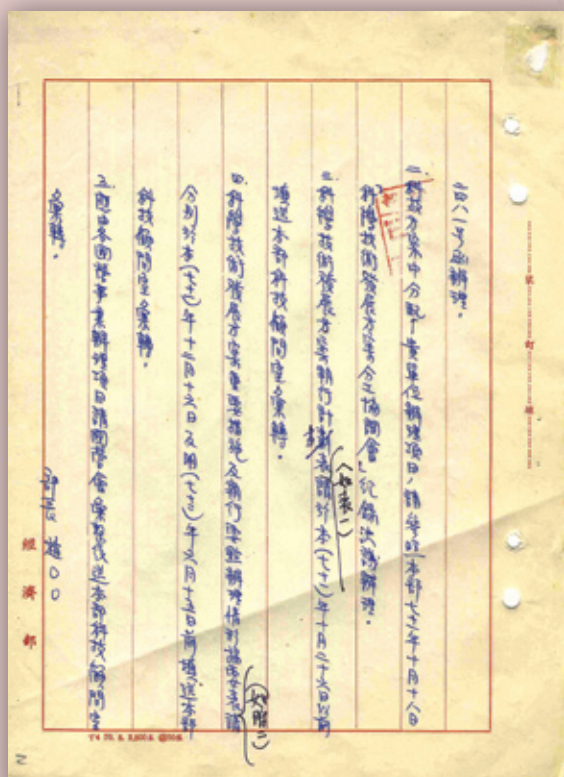 二四八一号函辦理。
二、科技方案中分配了貴單位辦理項目，請參照本部七十二年十月十八日
「科學技術發展方案分工協調會」紀錄決議辦理。
三、科學技術發展方案執行計劃表請於本(七十二)年十月二十六日以前
(如表一)
填送本部科技顧問室彙轉。
四、科學技術發展方案重要措施及執行 辦理情形 表請
(如附二)
分別於本(七十二)年十二月十六日及明(七十三)年六月十五日前填送本部
科技顧問室彙轉。
五、 各國營事業辦理項目請國營會彙整後送本部科技顧問室
彙轉。
部長 趙○○
經濟部
裝 訂 線